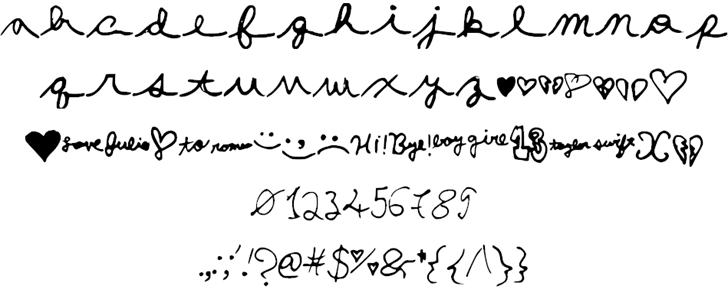 a b c d e f g h i j k l m n o p
q r s t u v w x y z ♥♡
♥ love Julia ♡ to romeo Hi! Bye! boy girl 13 taylor swift X
0123456789
.,:;'!?@#$%&*{</\>}